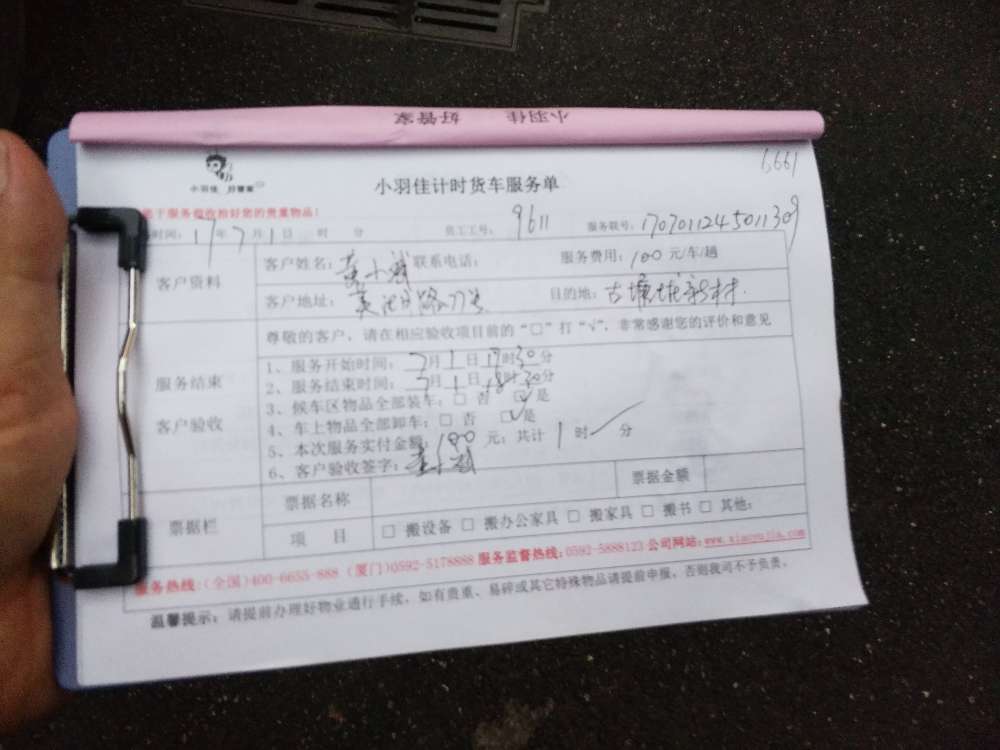 小羽佳 好管家
6661
小羽佳 好管家
小羽佳计时货车服务单
服务验收检好您的贵重物品!
时间: 17年7月1日 时 分 员工工号: 9611 服务联号: 1707011245011309
客户资料
客户姓名: 联系电话: 服务费用: 100元/车/趟
客户地址: 目的地:
尊敬的客户,请在相应验收项目前的“□”打“√”,非常感谢您的评价和意见
服务结束
客户验收
1、服务开始时间: 7月1日17时30分
2、服务结束时间: 7月1日18时30分
3、候车区物品全部装车: □ 否 ☑ 是
4、车上物品全部卸车: □ 否 ☑ 是
5、本次服务实付金额: 100元; 共计 1时 / 分
6、客户验收签字:
票据栏
票据名称 票据金额
项 目 □ 搬设备 □ 搬办公家具 □ 搬家具 □ 搬书 □ 其他:
服务热线: (全国)400-6655-888 (厦门)0592-5178888 服务监督热线: 0592-5888123 公司网站: www.xiaoyujia.com
温馨提示: 请提前办理好物业通行手续,如有贵重、易碎或其它特殊物品请提前申报,否则我司不予负责。